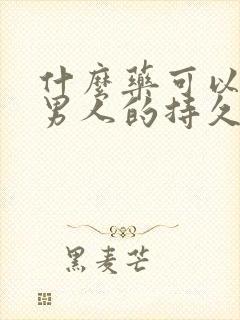 什麼藥可以
男人的持久
黑麦芒